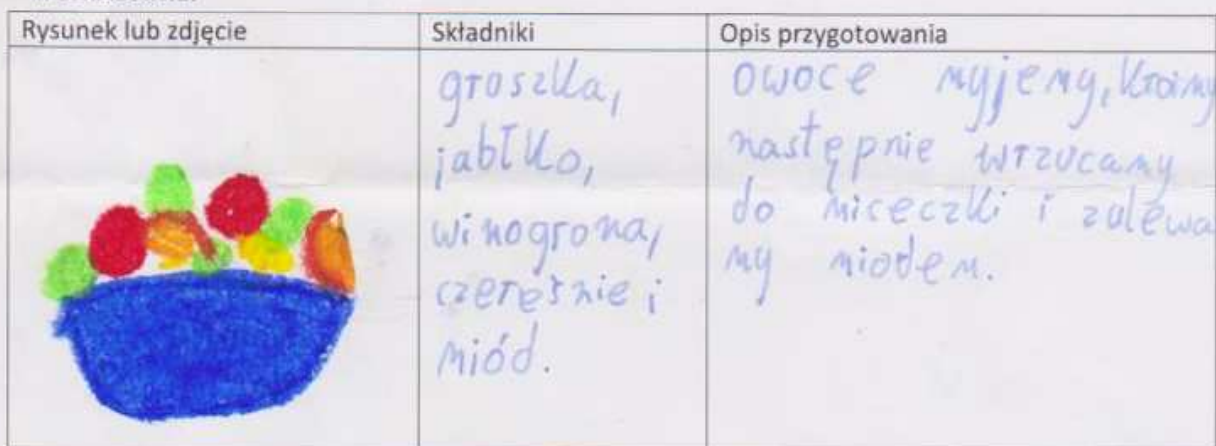 Rysunek lub zdjęcie
Składniki
Opis przygotowania
gruszka,
jabłko,
winogrona,
czereśnie i
miód.
owoce myjemy, kroimy
następnie wrzucamy
do miceczki i zalewa
my miodem.